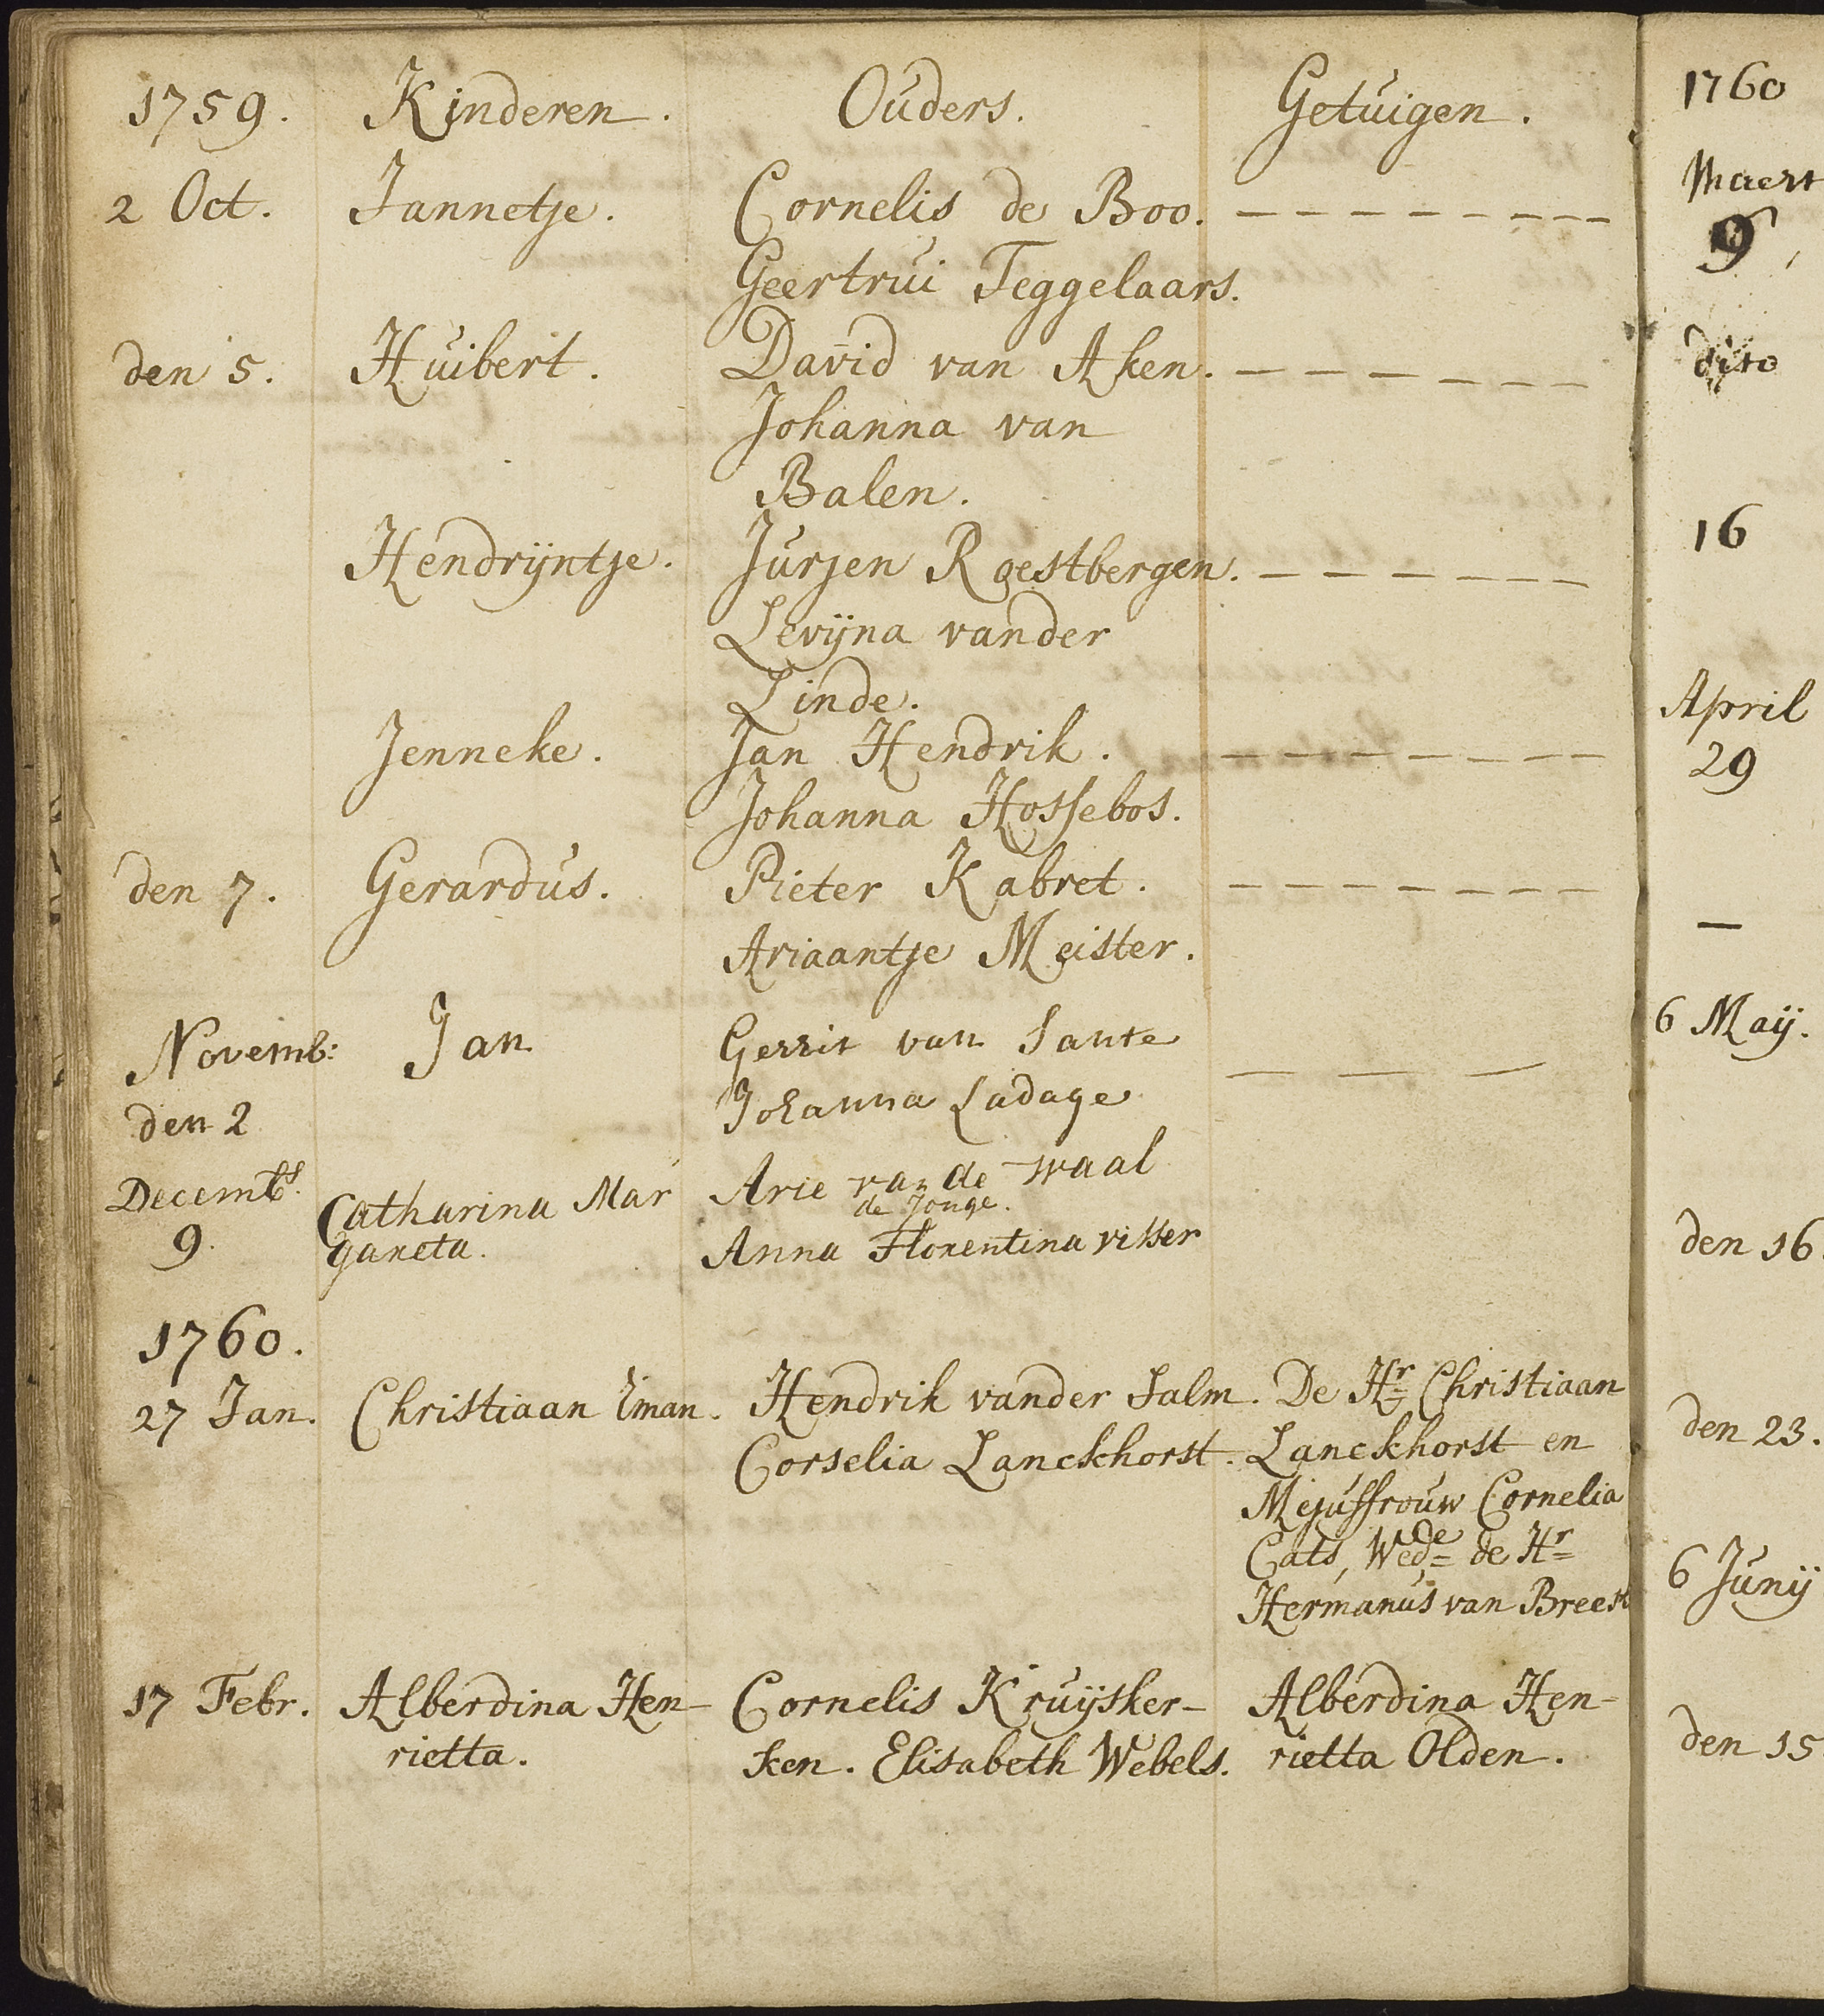 1759. Kinderen. Ouders. Getuigen.
2 Oct. Jannetje. Cornelis de Boo. — — — — — — — —
Geertrui Teggelaars.
den 5. Huibert. David van Aken. — — — — — — —
Johanna van
Balen.
Hendrijntje. Jurjen Roestbergen. — — — — — — —
Levijna vander
Linde.
Jenneke. Jan Hendrik. — — — — — — — —
Johanna Hossebos.
den 7. Gerardus. Pieter Kabret. — — — — — — — —
Ariaantje Meister.
Novemb: Jan Gerrit van Sante
den 2 Johanna Ladage — — —
Decembr. Catharina Mar Arie van de Waal
de Jonge.
9. gareta. Anna Florentina Visser
1760.
27 Jan. Christiaan Iman. Hendrik vander Salm. De Hr Christiaan
Corselia Lanckhorst. Lanckhorst en
Mejuffrouw Cornelia
Cats, Wede de Hr
Hermanus van Breest
17 Febr. Alberdina Hen- Cornelis Kruijsker- Alberdina Hen-
rietta. ken. Elisabeth Webels. rietta Olden.
1760
Maert
9
dito
16
April
29
—
6 Maij.
den 16.
den 23.
6 Junij
den 15